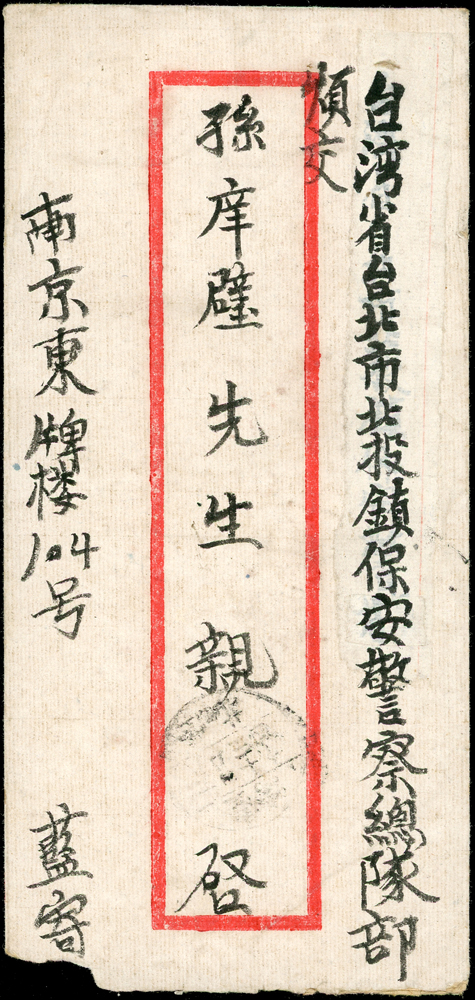 台湾省台北市北投鎮保安警察總隊部
煩交
孫庠璧先生 親啓
南京東牌楼104号
藍寄